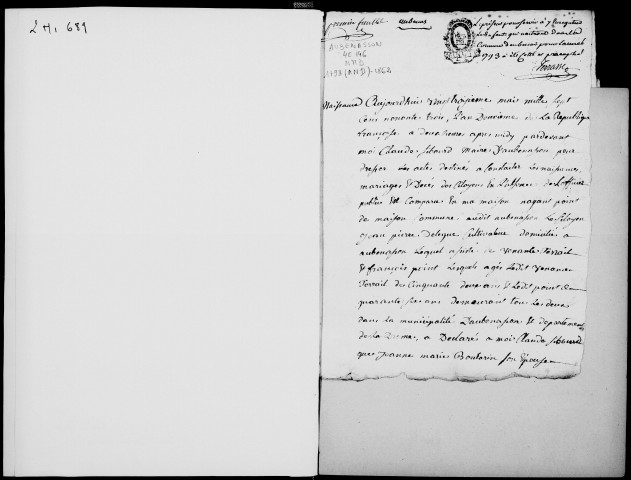 2 Mi 681
premier feuillet
aubenas
AUBENASSON
4E 146
NMD
1793 (AND) - 1862
Le présent pour servir à Enregistrer
Les enfants qui naitront dans la
Commune d'aubenasson pour l'année
1793 a été cotté et paraphé
Naissance Aujourdhuy vingt troisieme mai mille sept
Cens nonante trois, L'an Deuxieme de La Republique
françoise a deux heures apres midy pardevant
moi Claude Sibourd Maire D'aubenasson pour
dresser les actes destinés a Constater les naissances,
mariages & Decés des Citoyens En L'absence de L'officier
public Est Comparu En ma maison nayant point
de maison Commune audit aubenasson Le Citoyen
jean pierre deleyne Cultivateur domicilié a
aubenasson Lequel assisté de Venance Terrail
& françois point Lesquels agés Ledit Venance
Terrail de Cinquante deux ans & Ledit point de
quarante six ans demeurant tous Les deux
dans La municipalité D'aubenasson & departement
de La Drome, a Declaré a moi Claude Sibourd
que jeanne marie Boutarin son Epouse